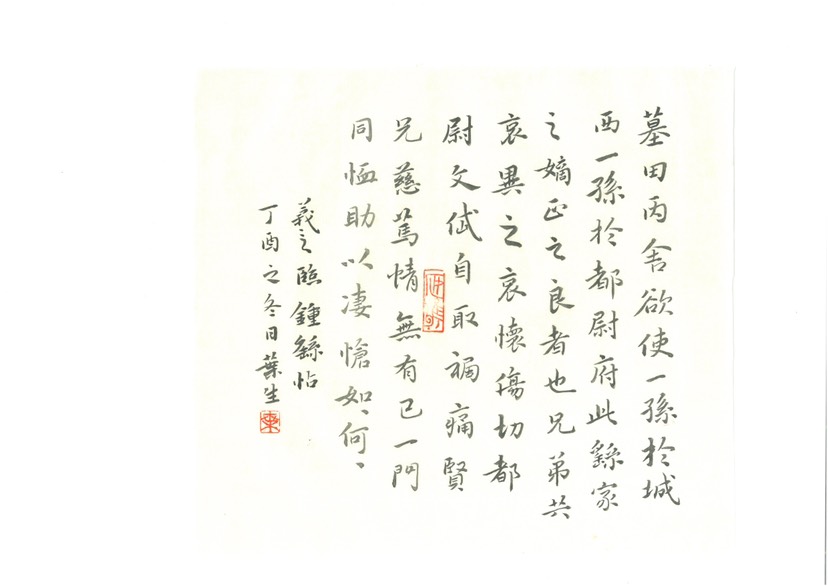 墓田丙舍欲使一孫於城
西一孫於都尉府此繇家
之嫡正之良者也兄弟共
哀異之哀懷傷切都
尉文岱自取禍痛賢
兄慈篤情無有已一門
同恤助以凄愴如何
羲之臨鍾繇帖
丁酉之冬日葉生